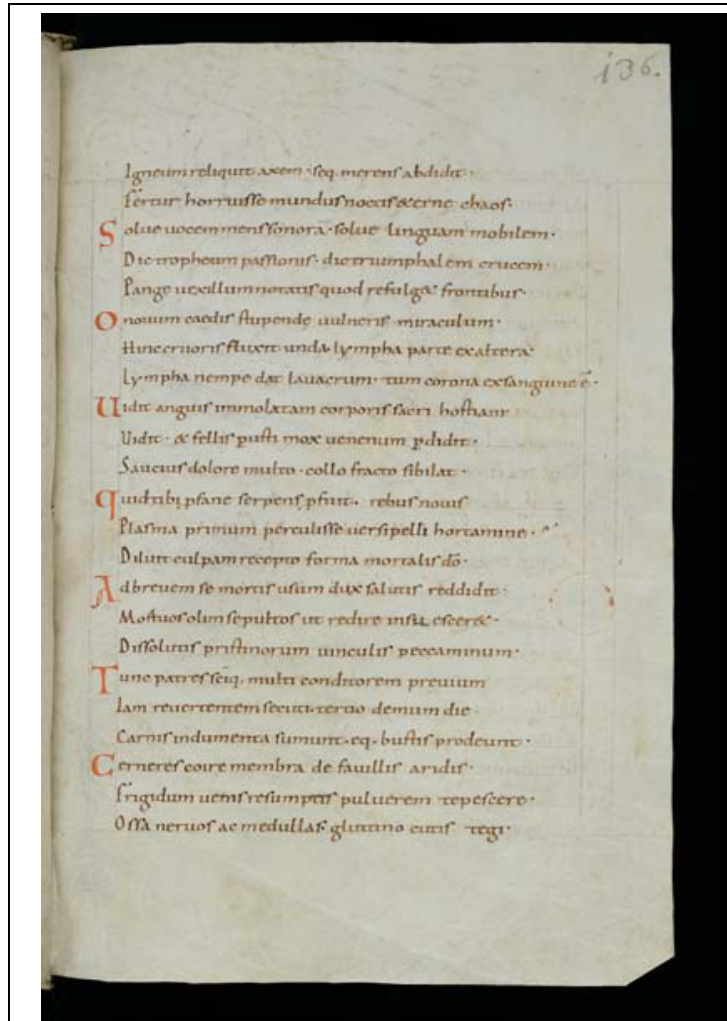 136.
Igneum reliquit axem · seq. merens abdidit ·
Fertur horruisse mundus noctis &erne chaos ·
Solue uocem mens sonorā · solue linguam mobilem ·
Dic tropheum passionis · dic triumphalem crucem ·
Pange uexillum notatis quod refulg& frontibus ·
O nouum caedis stupende uulneris miraculum ·
Hinc cruoris fluxit unda · lympha parte ex altera ·
Lympha nempe dat lauacrum · tum corona ex sanguine ē ·
Uidit anguis immolatam corporis sacri hostiam
Uidit · & fellis pusti mox uenenum pdidit ·
Saucius dolore multo · collo fracto sibilat ·
Quid tibi pfane serpens pfuit · rebus nouis
Plasma primum perculisse uersipelli hortamine ·
Diluit culpam recepto forma mortalis dō ·
Ad breuem se mortis usum dux salutis reddidit :
Mortuos olim sepultos ut redire insu escer& ·
Dissolutis pristinorum uinculis peccaminum ·
Tunc patres sciq. multi conditorem preuium
Iam reuertentem secuti · tertio demum die :
Carnis indumenta sumunt · eq. bustis prodeunt ·
Cerneres coire membra de fauillis aridis ·
Frigidum uenis resumptis puluerem tepescere ·
Ossa neruos ac medullas glutino cutis tegi ·